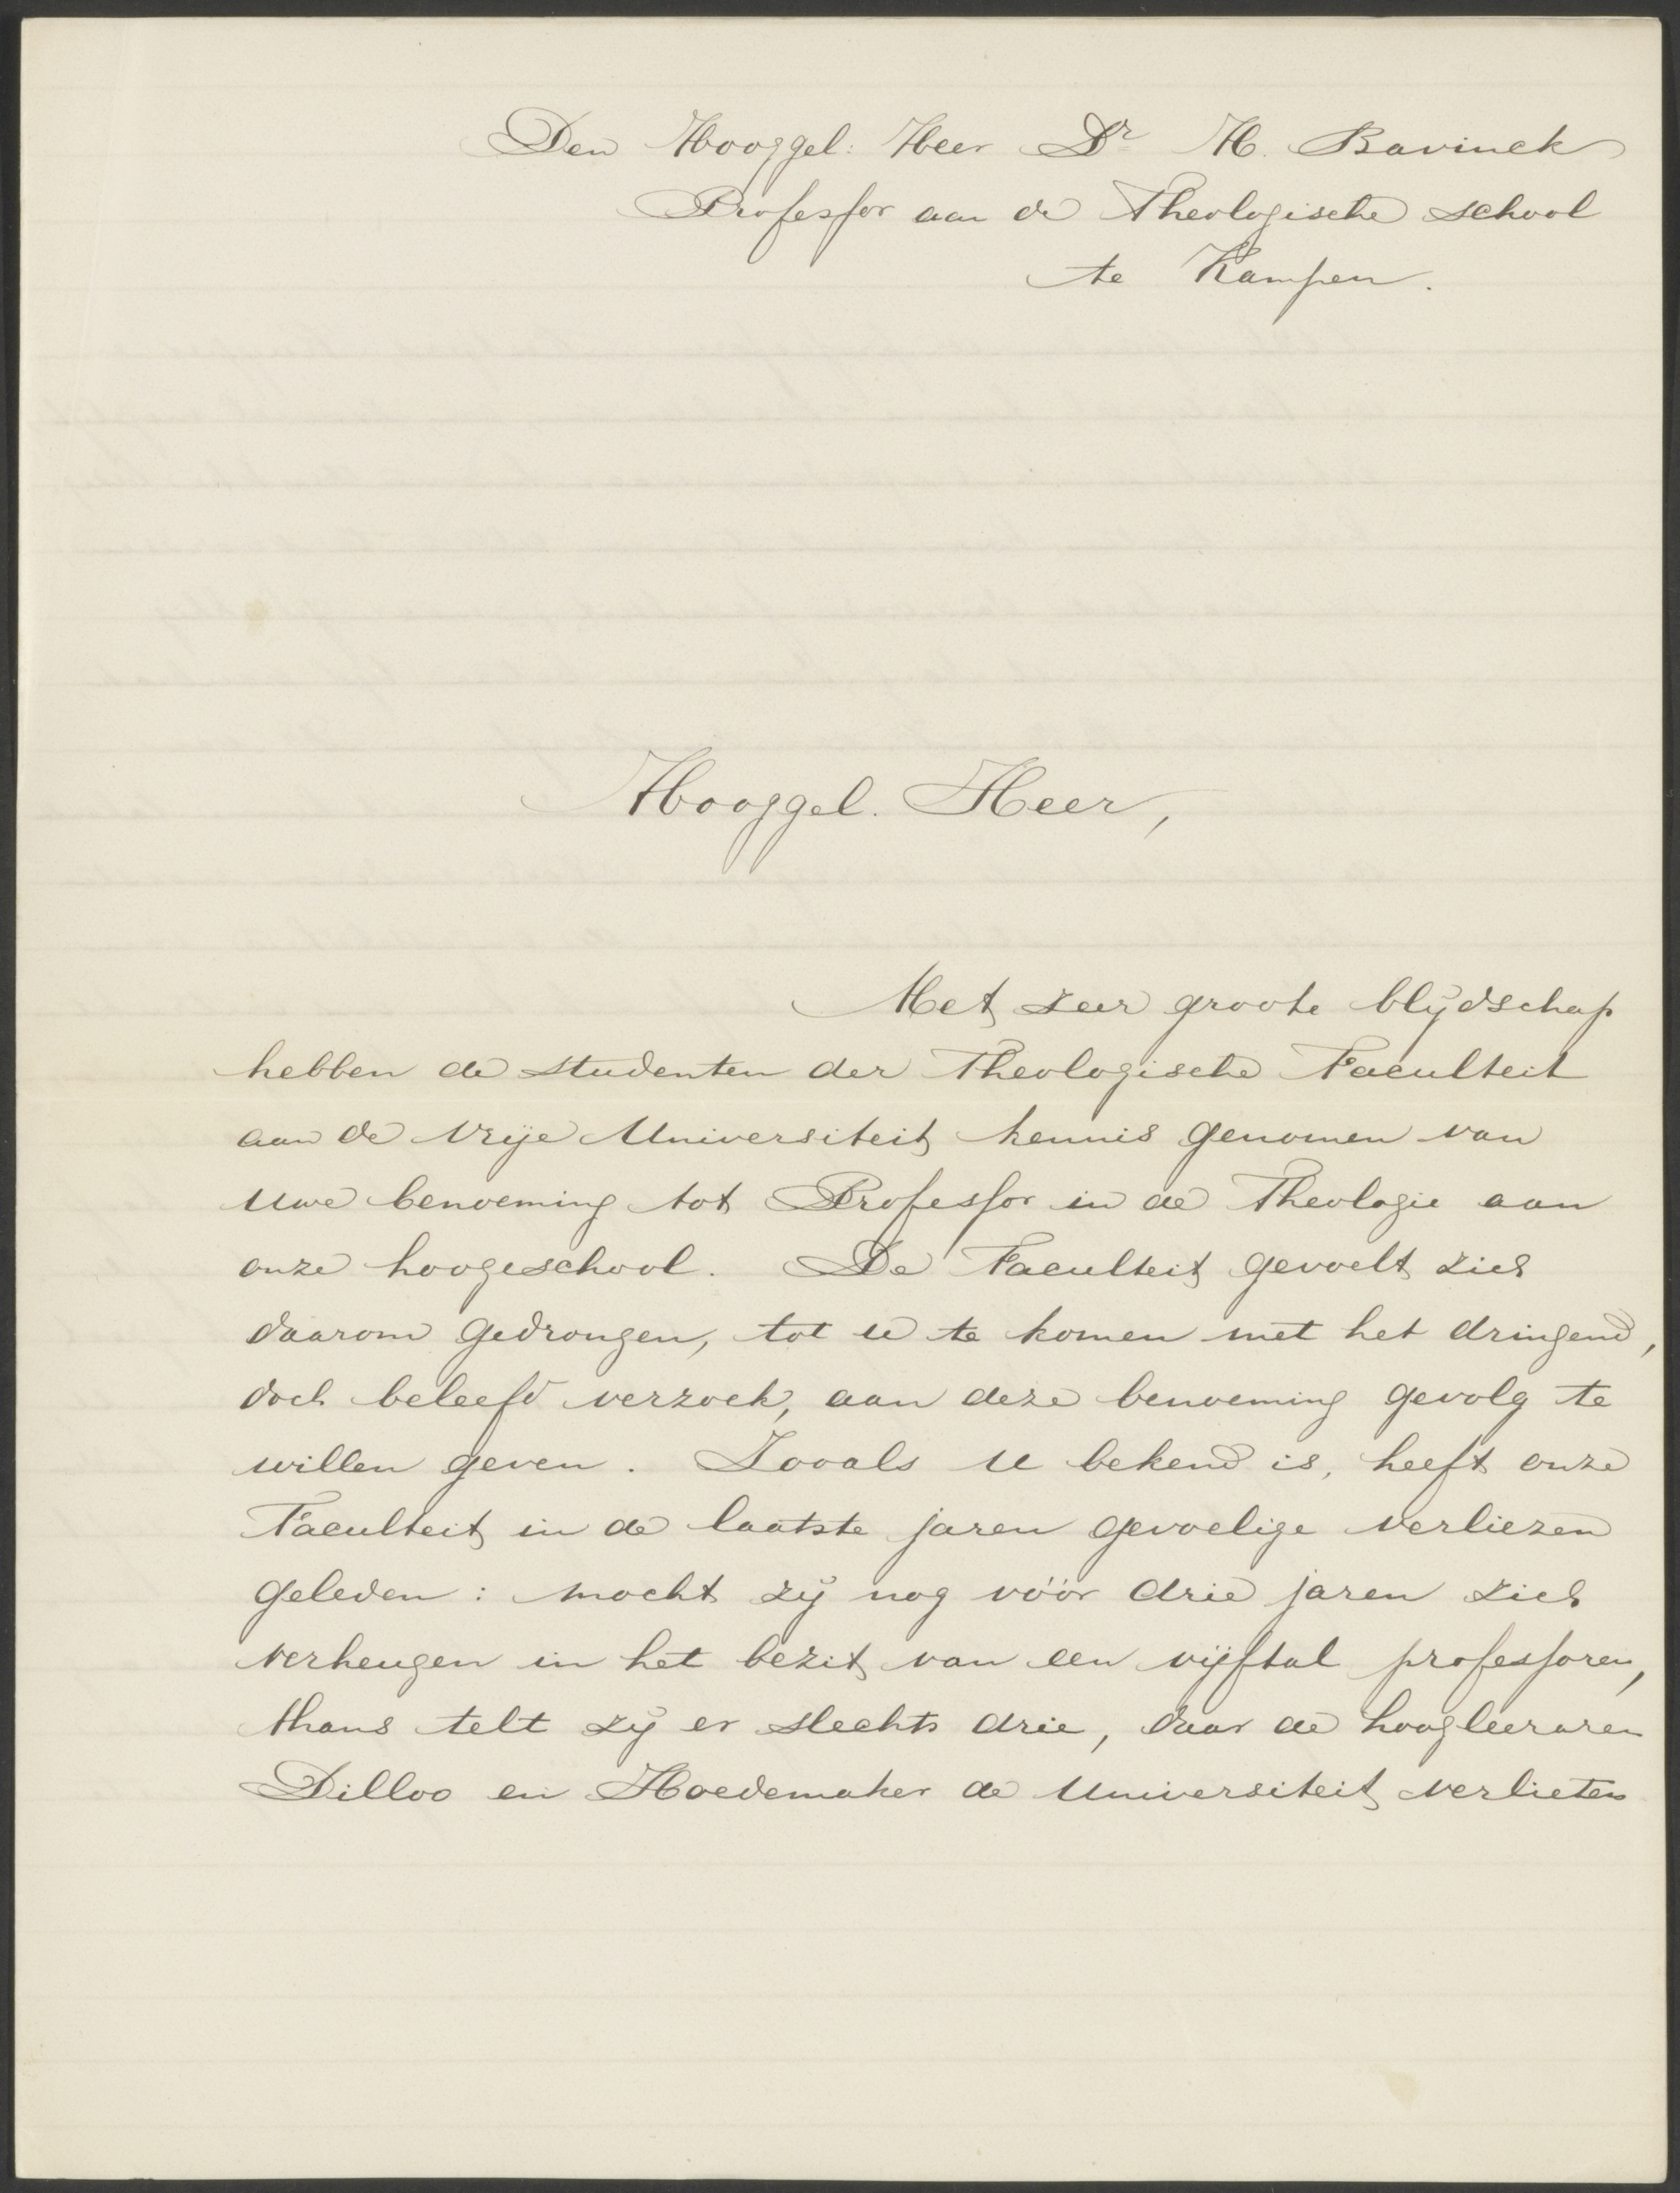 Den Hooggel: Heer Dr H. Bavinck
Professor aan de Theologische school
te Kampen.
Hooggel. Heer,
Met zeer groote blijdschap
hebben de studenten der Theologische Faculteit
aan de Vrije Universiteit kennis genomen van
Uwe benoeming tot Professor in de Theologie aan
onze hoogeschool. De Faculteit gevoelt zich
daarom gedrongen, tot u te komen met het dringend,
doch beleefd verzoek, aan deze benoeming gevolg te
willen geven. Zooals U bekend is, heeft onze
Faculteit in de laatste jaren gevoelige verliezen
geleden: mocht zij nog vóór drie jaren zich
verheugen in het bezit van een vijftal professoren,
thans telt zij er slechts drie, daar de hoogleeraren
Dilloo en Hoedemaker de Universiteit verlieten